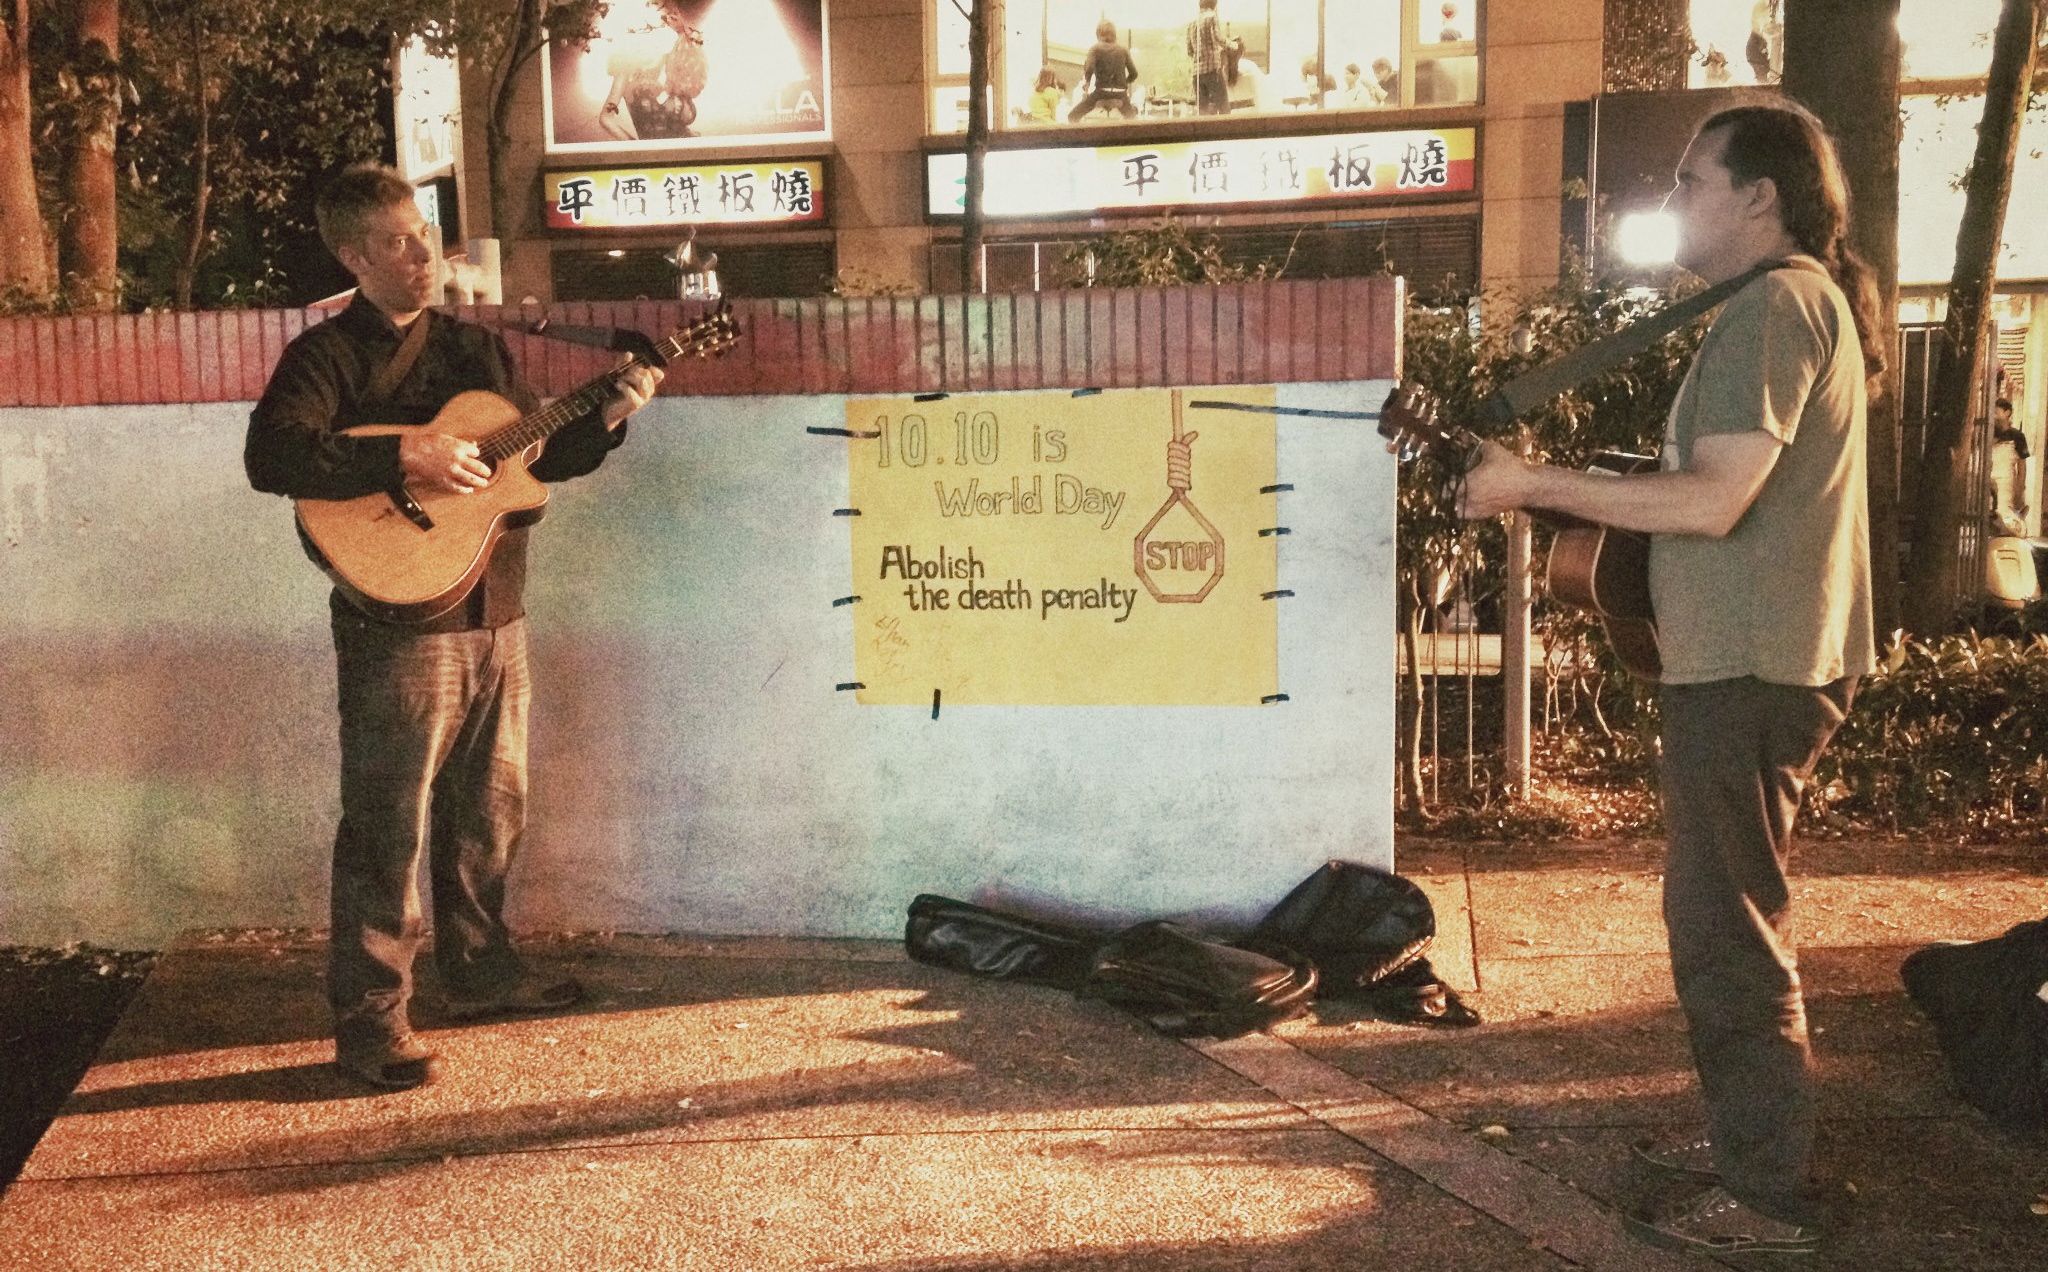 LLA
PROFESSIONALS
平價鐵板燒
平價鐵板燒
10.10 is
World Day
Abolish
the death penalty
STOP